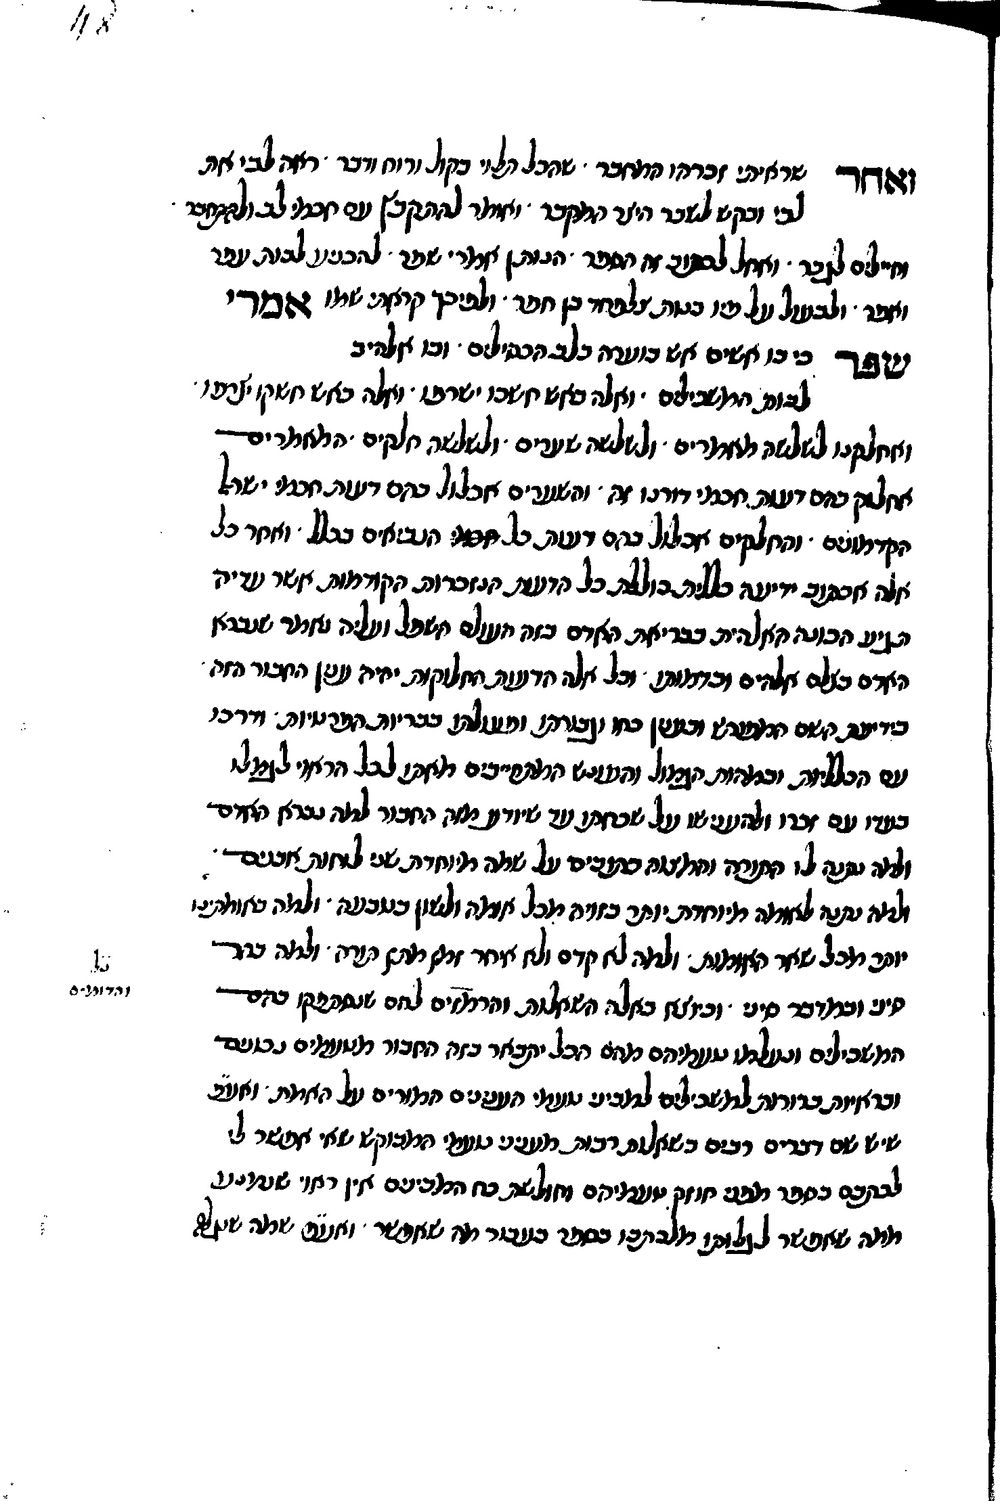 48
ואחר שראיתי זכרהו המחבר · שהכל תלוי בקול ורוח ודבר · ראה לבי את
לבי ובקש לשבר היצר המקבר · ואומר להתקבץ עם חכמי לב ולהתחבר ·
וחיילים לגבר · ואחל לכתוב זה הספר · הנותן אמרי שפר · להכניע לבות עפר
ואפר · ולבעול על פיו בנות צלפחד בן חפר · ולפיכך קראתי שמו אמרי
שפר כי בו אשים אש בוערה בלב הכסילים · ובו אלהיב
לבות המשכילים · ואלה באש חשכו ישרפו · ואלה באש חשקו יצרפו ·
ואחלקנו לשלשה מאמרים · ולשלשה שערים · ולשלשה חלקים · המאמרים
אחלוק בהם דעות חכמי דורנו זה · והשערים אכלול בהם דעות חכמי ישראל
הקדמונים · והחלקים אכלול בהם דעות כל הנביאים בכלל · ואחר כל
אלה אכתוב ידיעה כללית כוללת כל הדעות הנזכרות הקודמות אשר עדיה
תגיע הכונה האלהית בבריאת האדם בזה העולם השפל ועליה נאמר שנברא
האדם בצלם אלהים ובדמותו · וכל אלה הדעות החלוקות יהיה ענין החבור הזה ·
בידיעת השם המפורש ובענין כחו וגבורתו ופעולתו בבריות הפרטיות · ודרכו
עם הכלליות ובמהות הגמול והעונש המתחייבים מאתו לכל הראוי לגמלו
בעדו עם זכרו ולהענישו על שכחתו עד שיודע מזה החבור למה נברא האדם
ולמה נתנה לו התורה והמצוה כתובים על שמה מיוחדת שני לוחות אבנים ·
ולמה נתנה לאומה מיוחדת יותר בזויה מכל אומה ולשון בטבעה · ולמה באומתינו
יותר מכל שאר האומות · ולמה לא קדם ולא איחר זמן מתן תורה · ולמה בהר
סיני ובמדבר סיני · וכיוצא באלה השאלות והרמזים להם שנסתפקו בהם
המשכילים ונעלמו טעמיהם מהם הכל יתבאר בזה החבור מטעמים נכונים
ובראיות ברורות למשכילים למביני טעמי הענינים המורים על האמת · ואע״פ
שיש שם דברים רבים כשאלות רבות מעניני טעמי המבוקש שאי אפשר לי
לכתבם בספר מפני חוזק טעמיהם וחולשת כח המבינים אין ראוי שנמנע
ממה שאפשר לגלותו מלכתבו בספר בעבור מה שאפשר · ואע״פ שמה שנגלה
כל
והדומים